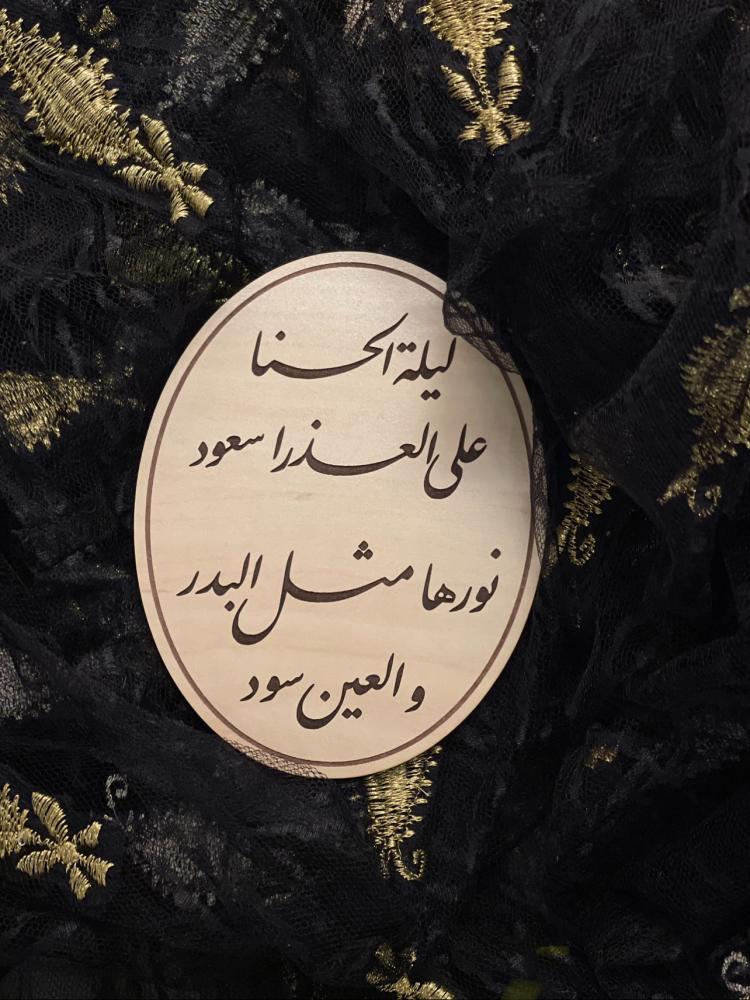 ليلة الحنا
على العذرا سعود
نورها مثل البدر
و العين سود